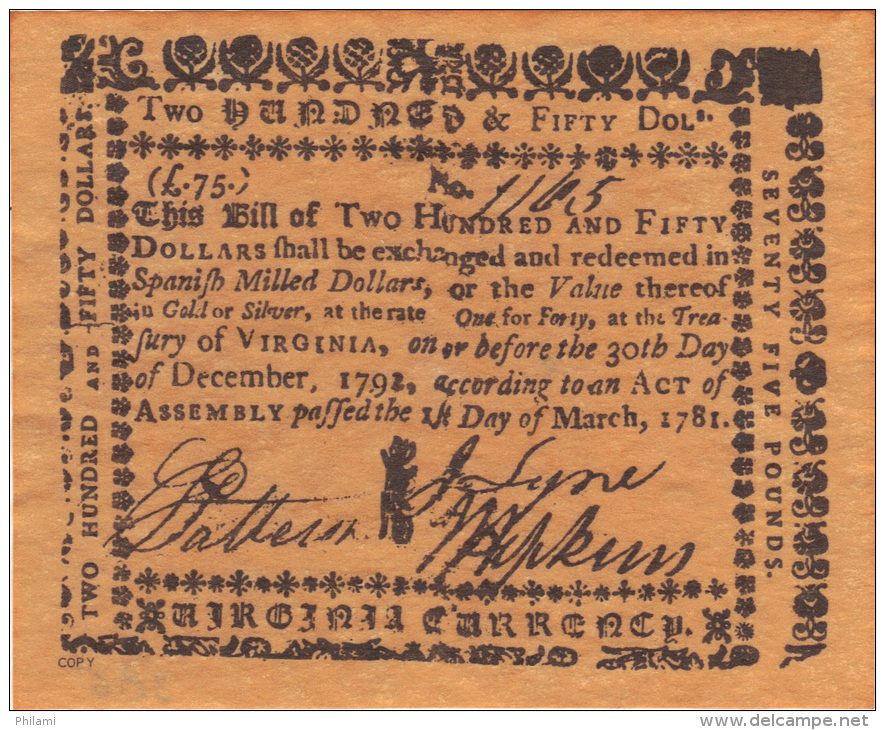 Two HUNDRED & FIFTY DOLs.
(£.75.) No. 11615
This Bill of TWO HUNDRED AND FIFTY
DOLLARS ſhall be exchanged and redeemed in
Spaniſh Milled Dollars, or the Value thereof
in Gold or Silver, at the rate One for Forty, at the Trea-
ſury of VIRGINIA, on or before the 30th Day
of December, 1792, according to an ACT of
ASSEMBLY paſſed the 1ſt Day of March, 1781.
J. Lyne
Hopkins
VIRGINIA CURRENCY.
TWO HUNDRED AND FIFTY DOLLARS.
SEVENTY FIVE POUNDS.
COPY
Philami
www.delcampe.net